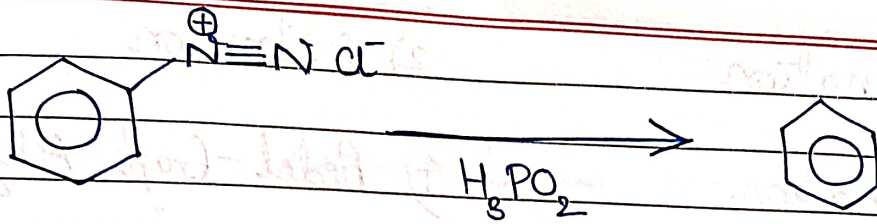 ⊕
N≡N Cl⁻
H₃PO₂